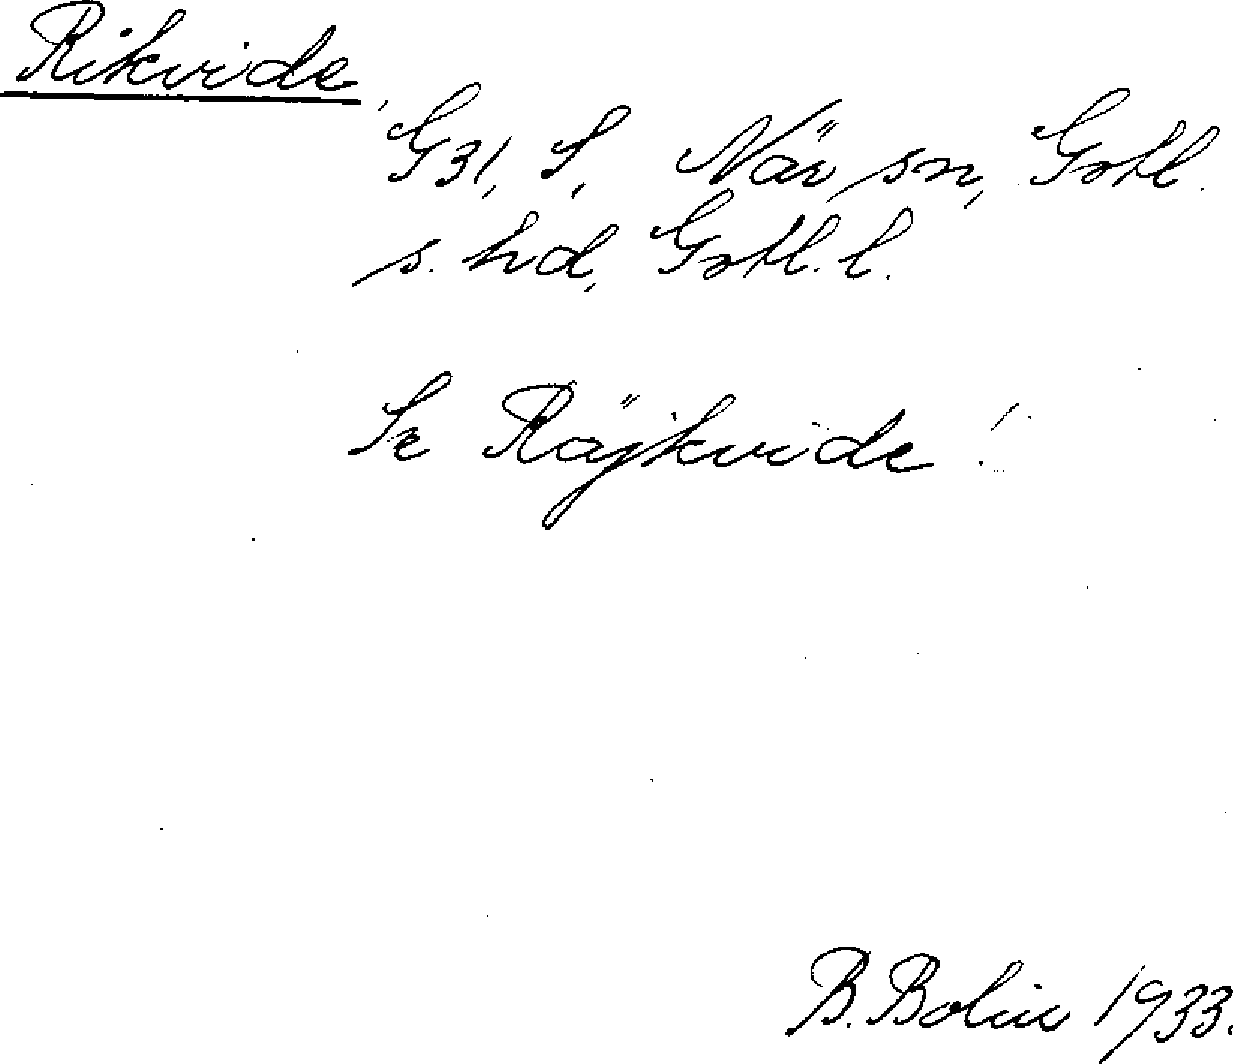 Rikvide
G31, S, När sn, Gotl.
s. hd, Gotl. l.
Se Räjkvide!
B. Bolin 1933.